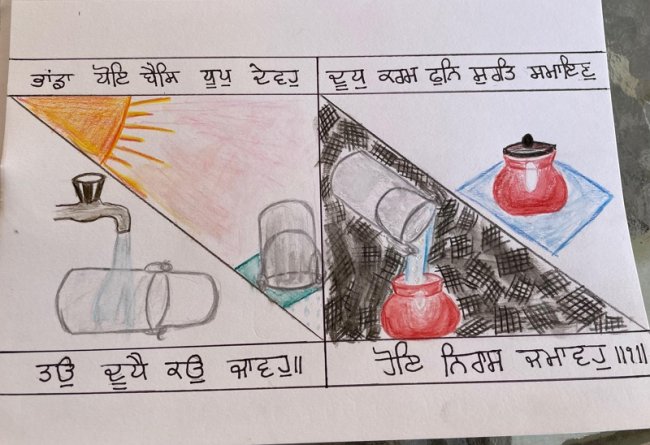 ਭਾਂਡਾ ਧੋਇ ਬੈਸਿ ਧੂਪੁ ਦੇਵਹੁ
ਤਉ ਦੂਧੈ ਕਉ ਜਾਵਹੁ॥
ਦੂਧੁ ਕਰਮ ਫੁਨਿ ਸੁਰਤਿ ਸਮਾਇਣੁ
ਹੋਇ ਨਿਰਾਸ ਜਮਾਵਹੁ ॥੧॥